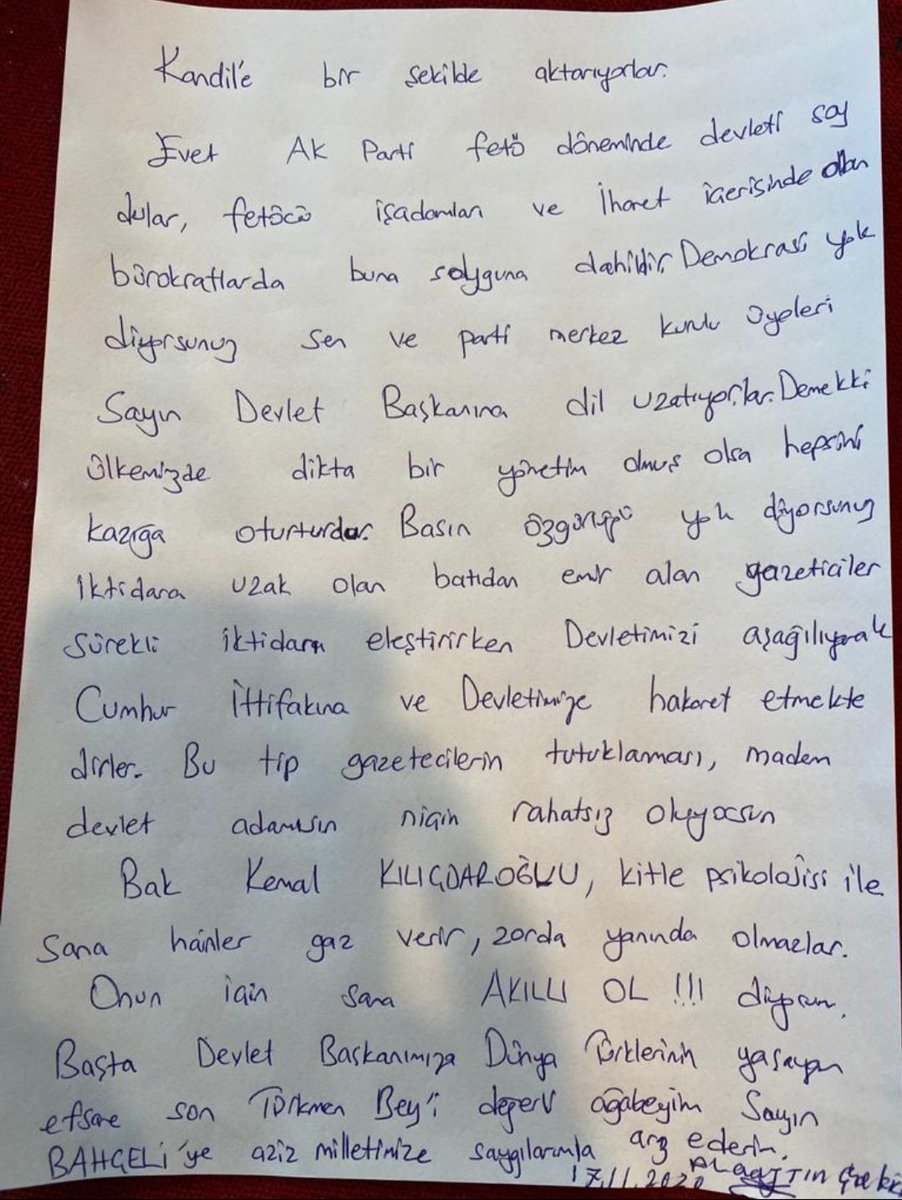 Kandil'e bir şekilde aktarıyorlar.
Evet AK Parti fetö döneminde devleti soy
dular, fetöcü işadamları ve İhanet içerisinde olan
bürokratlarda buna soyguna dahildir. Demokrasi yok
diyorsunuz sen ve parti merkez kurulu üyeleri
Sayın Devlet Başkanına dil uzatıyorlar. Demekki
ülkemizde dikta bir yönetim olmuş olsa hepsini
kazığa oturturdu. Basın özgürlüğü yok diyorsunuz
iktidara uzak olan batıdan emir alan gazeticiler
sürekli iktidarı eleştirirken Devletimizi aşağılıyarak
Cumhur İttifakına ve Devletimize hakaret etmekte
dirler. Bu tip gazetecilerin tutuklanması, madem
devlet adamısın niçin rahatsız oluyorsun
Bak Kemal KILIÇDAROĞLU, kitle psikolojisi ile
sana hainler gaz verir, zorda yanında olmazlar.
Onun için sana AKILLI OL !!! diyorum.
Başta Devlet Başkanımıza Dünya Türklerinin yaşayan
efsane son Türkmen Bey'i değerli ağabeyim Sayın
BAHÇELİ'ye aziz milletimize saygılarımla arz ederim.
17.11.2020 ALAATTİN